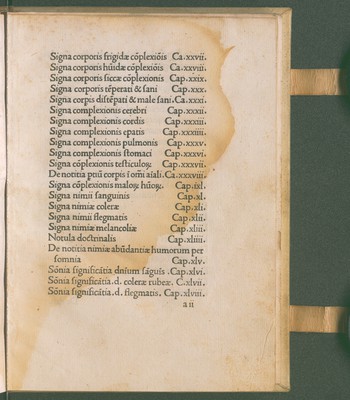 Signa corporis frigidæ cõplexiõis Ca.xxvii.
Signa corporis hũidæ cõplexiõis Ca.xxviii.
Signa corporis siccæ cõplexionis Cap.xxix.
Signa corporis tẽperati & sani Cap.xxx.
Signa corpis distẽpati & male sani.Ca.xxxi.
Signa complexionis cerebri Cap.xxxii.
Signa complexionis cordis Cap.xxxiii.
Signa complexionis epatis Cap.xxxiiii.
Signa complexionis pulmonis Cap.xxxv.
Signa complexionis stomaci Cap.xxxvi.
Signa cõplexionis testiculoꝝ. Cap.xxxvii.
De notitia ptiũ corpis ĩ oĩi aĩali.Ca.xxxviii.
Signa cõplexionis maloꝝ hũoꝝ. Cap.ixl.
Signa nimii sanguinis Cap.xl.
Signa nimiæ coleræ Cap.xli.
Signa nimii flegmatis Cap.xlii.
Signa nimiæ melancoliæ Cap.xliii.
Notula doctrinalis Cap.xliiii.
De notitia nimiæ abũdantiæ humorum per
somnia Cap.xlv.
Sõnia significãtia dniũm sãguis .Cap.xlvi.
Sõnia significãtia .d. coleræ rubeæ. C.xlvii.
Sõnia significãtia .d. flegmatis. Cap.xlviii.
a ii